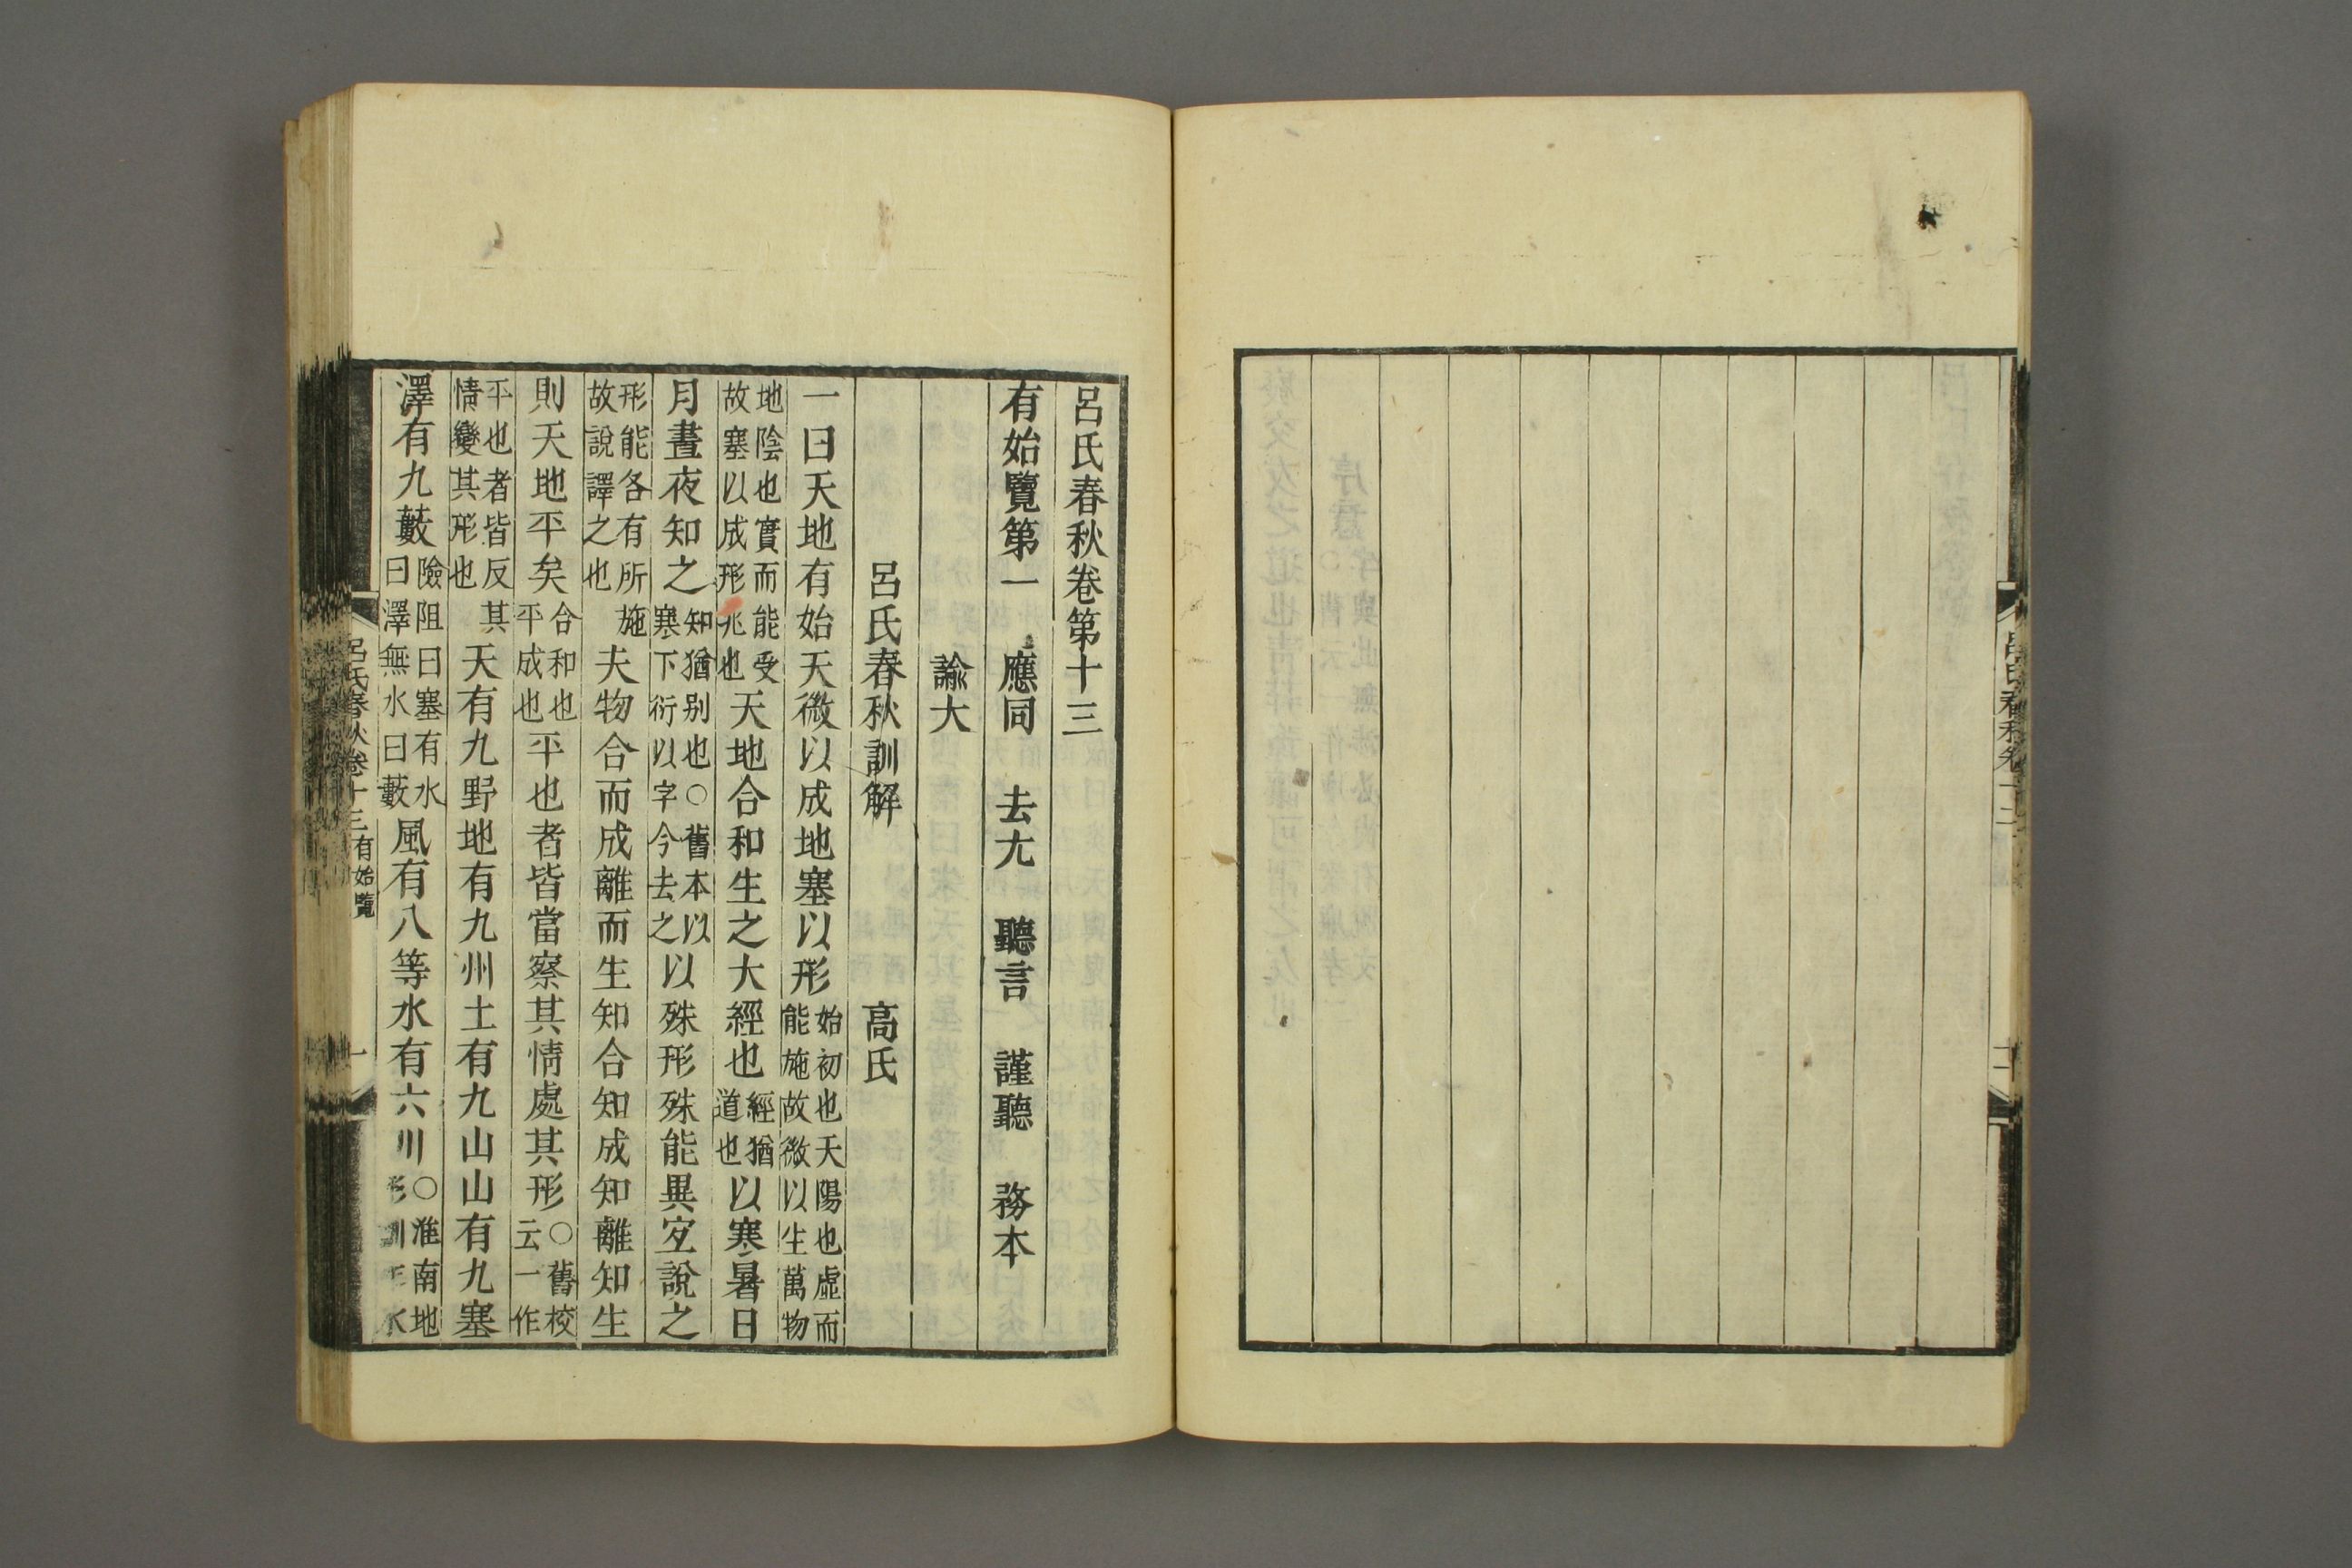 呂氏春秋卷第十三
有始覽第一　應同　去尤　聽言　謹聽　務本
諭大
呂氏春秋訓解　高氏
一曰天地有始天微以成地塞以形始初也天陽也虛而能施故微以生萬物
地陰也實而能受故塞以成形兆也天地合和生之大經也經猶道也以寒暑日
月晝夜知之知猶别也○舊本以寒下衍以字今去之以殊形殊能異宐說之
形能各有所施故說譯之也夫物合而成離而生知合知成知離知生
則天地平矣合和也平成也平也者皆當察其情處其形○舊校云一作
平也者皆反其情變其形也天有九野地有九州土有九山山有九塞
澤有九藪險阻曰塞有水曰澤無水曰藪風有八等水有六川○淮南地形訓作水
呂氏春秋卷十三有始覽
一